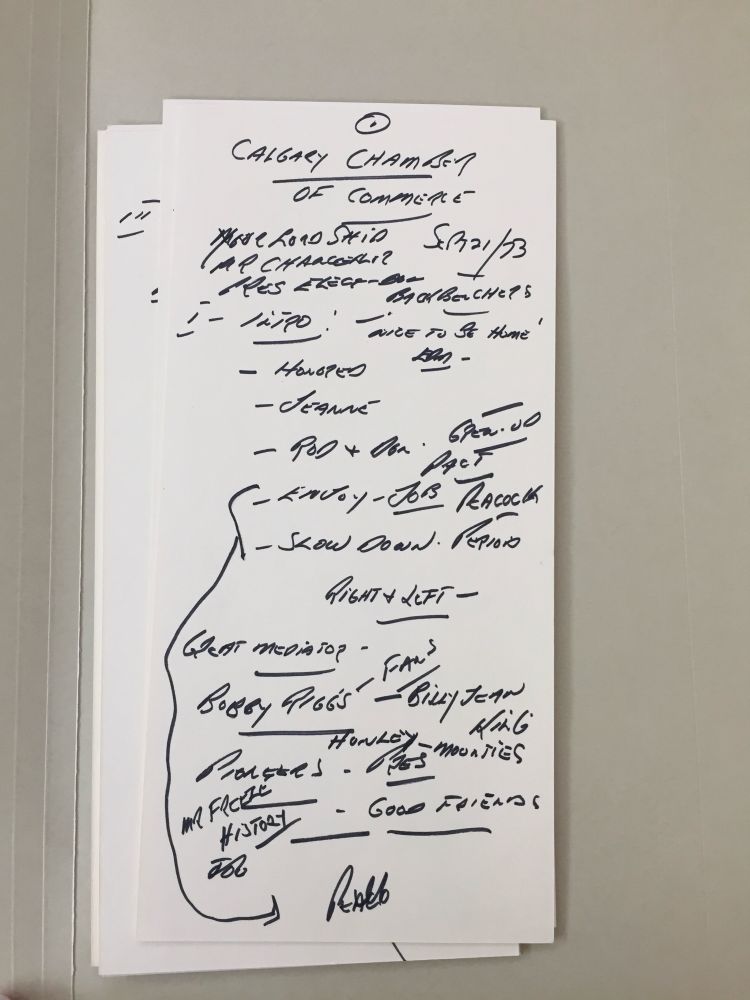 1
CALGARY CHAMBER
OF COMMERCE
YOUR LORDSHIP SEP 21/73
MR CHANCELLOR
PRES ELECT - DON
BACKBENCHERS
I - INTRO! - NICE TO BE HOME!
- HONORED
- JEANNE
- ROD & DON. OPEN-UP
PACT
- ENJOY - JOB PEACOCK
- SLOW DOWN. PERIOD
RIGHT & LEFT -
GREAT MEDIATOR -
BOBBY RIGGS - BILLY JEAN
KING
PIONEERS - PRES - MOUNTIES
- GOOD FRIENDS
HISTORY
JOB